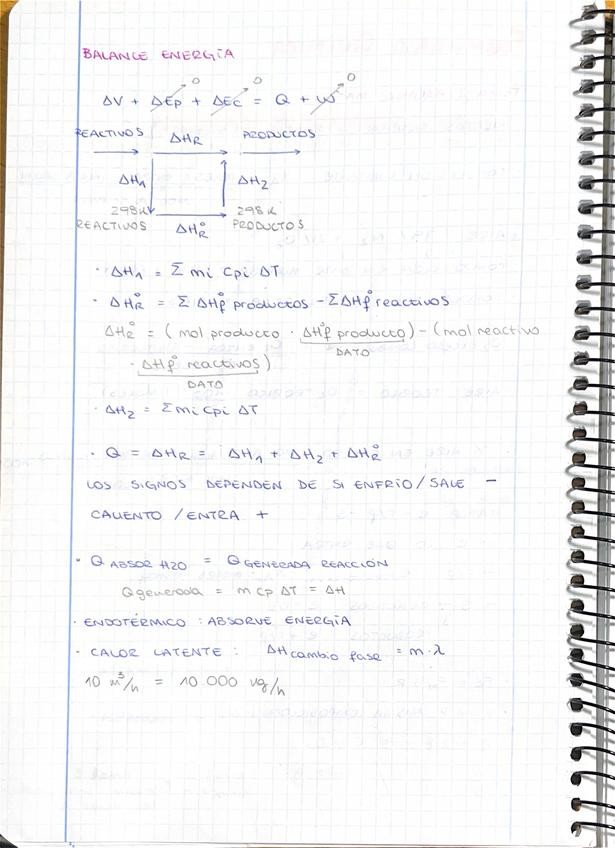 BALANCE ENERGÍA
0 0 0
ΔV + ΔEp + ΔEc = Q + W
REACTIVOS ΔHR PRODUCTOS
ΔH1 ΔH2
298K 298K
REACTIVOS ΔH°R PRODUCTOS
· ΔH1 = Σ mi Cpi ΔT
· ΔH°R = Σ ΔH°f productos - ΣΔH°f reactivos
ΔH°R = (mol producto · ΔH°f producto) - (mol reactivo
DATO
· ΔH°f reactivos)
DATO
· ΔH2 = Σ mi Cpi ΔT
· Q = ΔHR = ΔH1 + ΔH2 + ΔH°R
LOS SIGNOS DEPENDEN DE SI ENFRÍO/SALE -
CALIENTO/ENTRA +
· Q ABSOR H2O = Q GENERADA REACCIÓN
Q generada = m Cp ΔT = ΔH
· ENDOTÉRMICO : ABSORVE ENERGÍA
· CALOR LATENTE : ΔH cambio fase = m·λ
10 m³/h = 10 000 kg/h